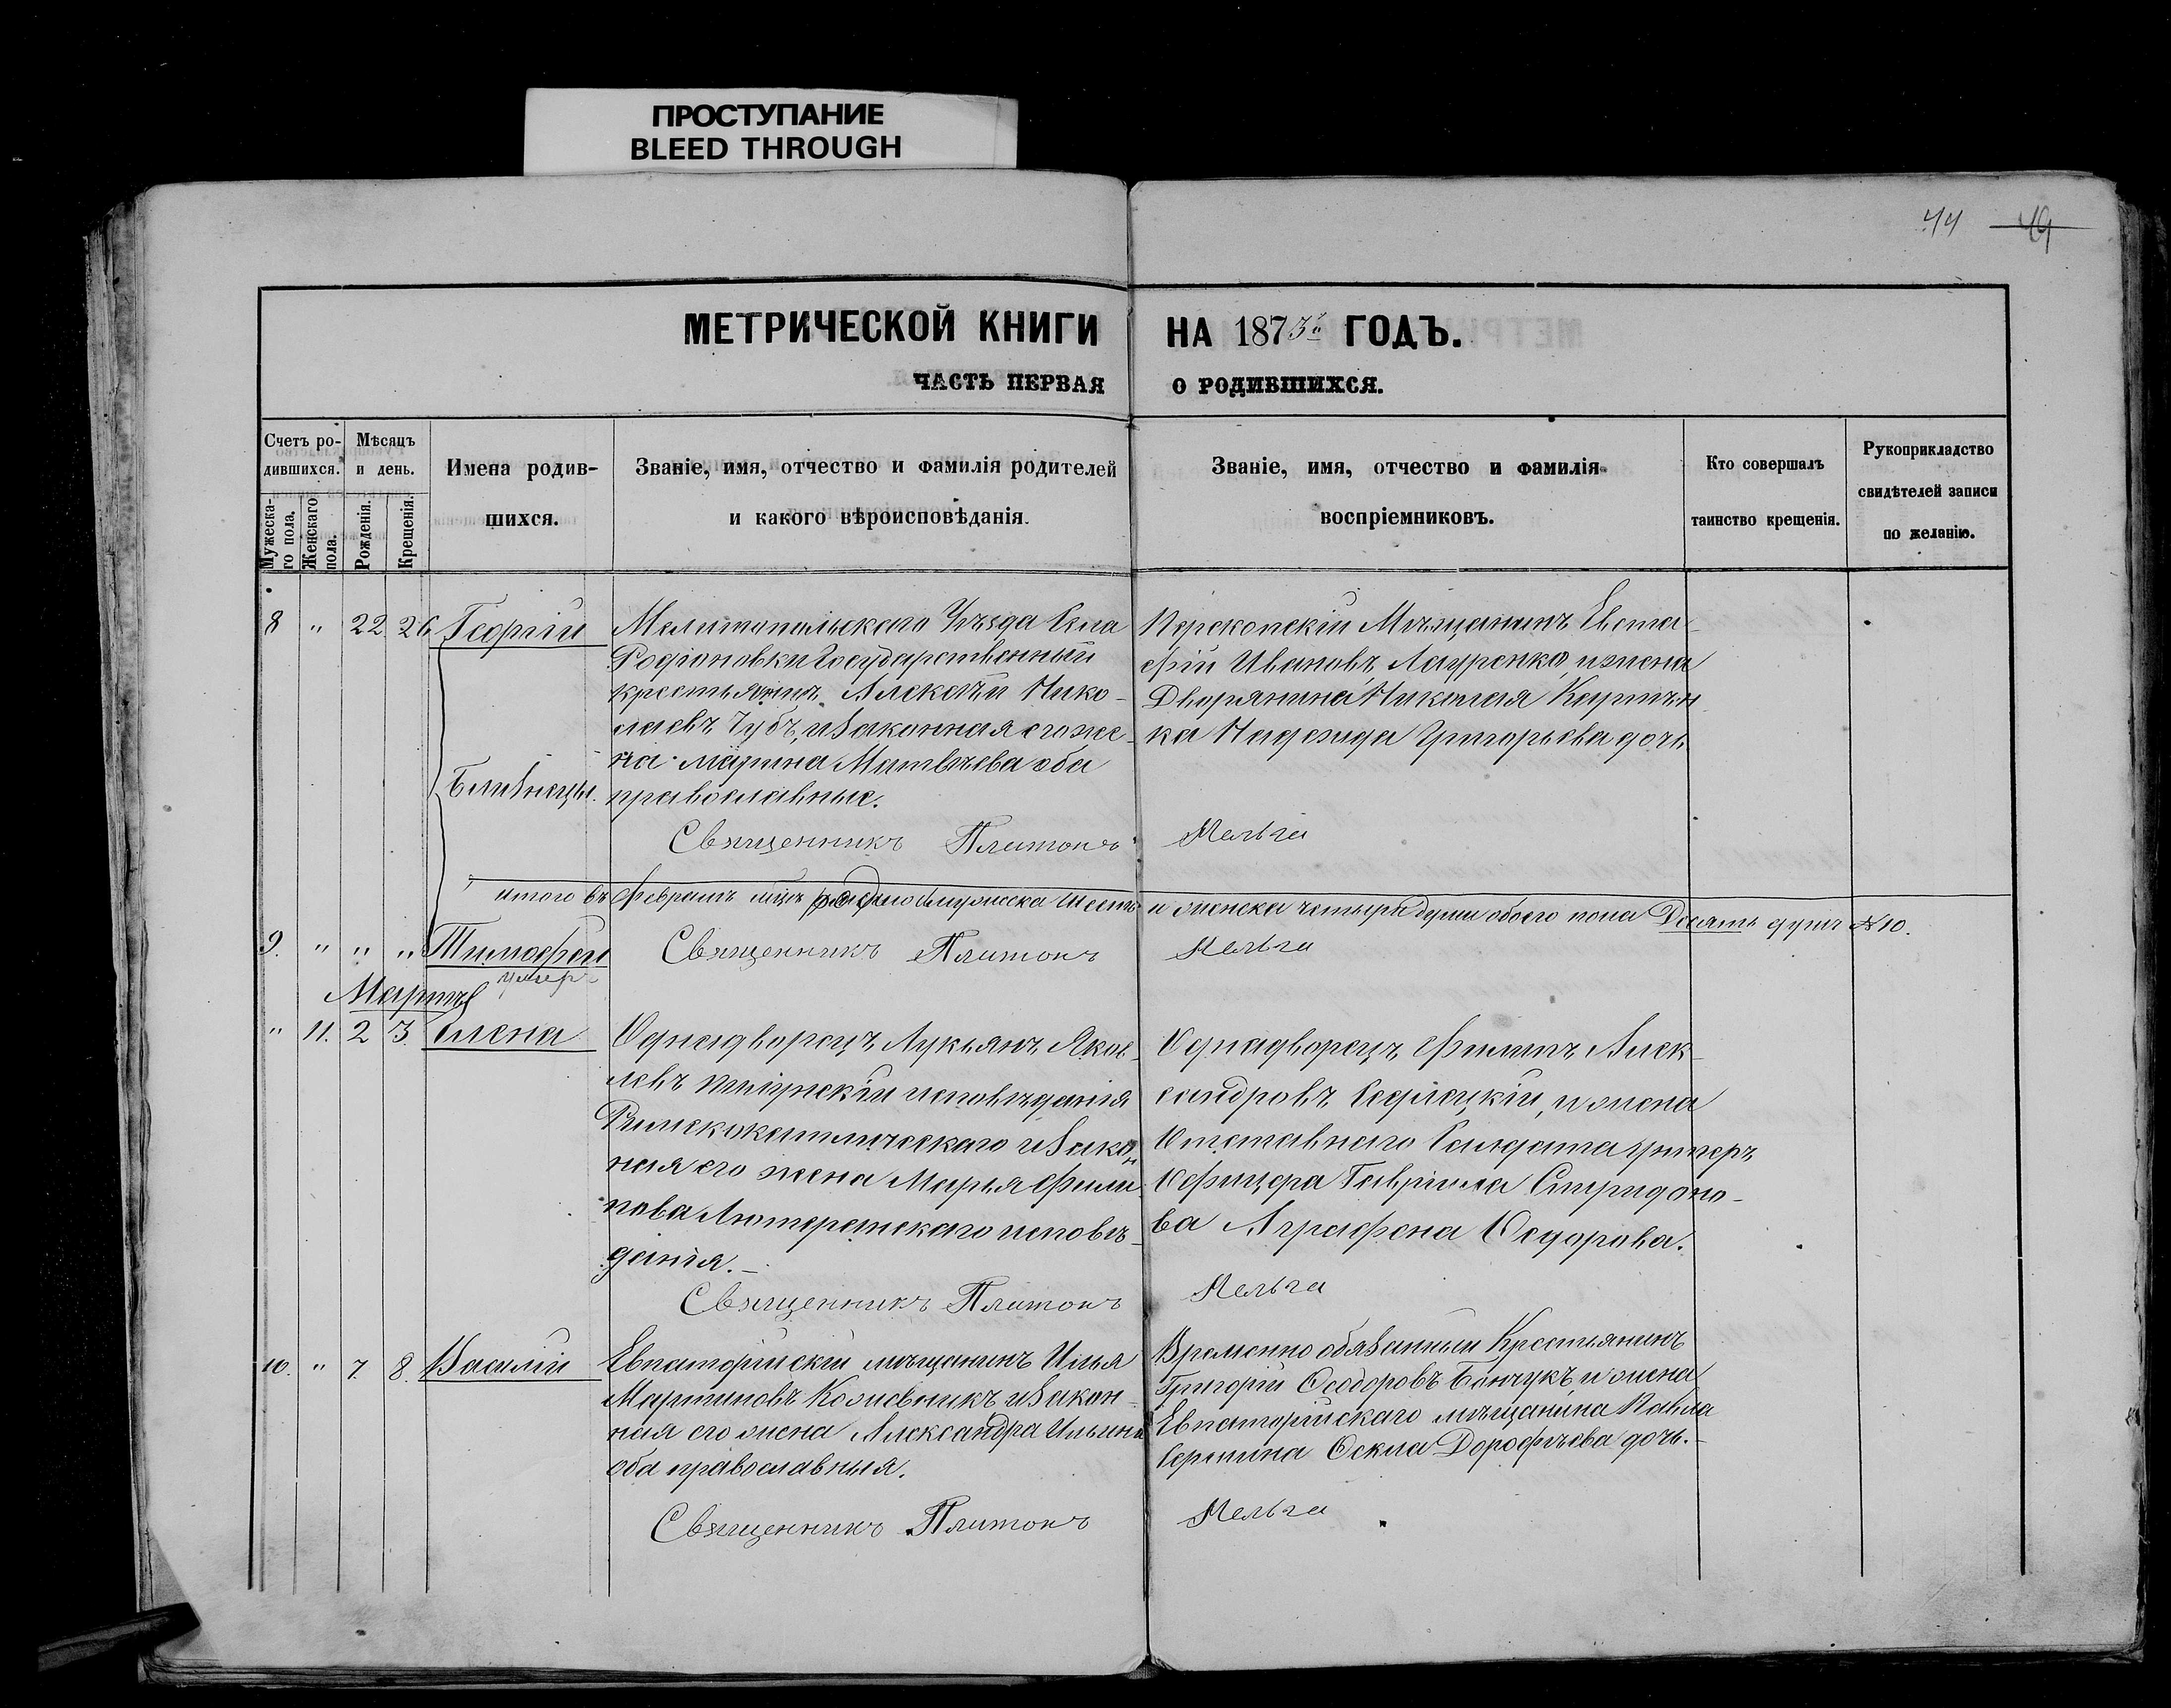 ПРОСТУПАНИЕ
BLEED THROUGH
44 49
МЕТРИЧЕСКОЙ КНИГИ НА 1873й ГОДЪ.
ЧАСТЬ ПЕРВАЯ О РОДИВШИХСЯ.
Счетъ ро-
дившихся.
Мужеска-
го пола.
Женскаго
пола.
Мѣсяцъ
и день.
Рожденія.
Крещенія.
Имена родив-
шихся.
Званіе, имя, отчество и фамилія родителей
и какого вѣроисповѣданія.
Званіе, имя, отчество и фамилія
воспріемниковъ.
Кто совершалъ
таинство крещенія.
Рукоприкладство
свидѣтелей записи
по желанію.
8 " 22 26 Георгій
Близнецы.
Мелитопольскаго Уѣзда Села
Родіоновки Государственный
крестьянинъ Алексѣй Нико-
лаевъ Чубъ, и законная его же-
на Марина Матвѣева оба
православные.
Перекопскій Мѣщанинъ Евста-
фій Ивановъ Лауренко, и жена
Дворянина Николая
ка Надежда Григорьева дочь
Священникъ Платонъ
итого въ Февралѣ мцѣ родилось мужеска шесть и женска четыре души обоего пола Десять душъ № 10.
9. " " " Тимофей
умер
Священникъ Платонъ
Мартъ
" 11. 2 3. Елена
Однодворецъ Лукьянъ Яков-
левъ исповѣданія
Римскокатолическаго и закон
ная его жена Марья Фили
пова Лютеранскаго исповѣ-
данія.
Однадворецъ Филипъ Алек-
сандровъ Седлецкій, и жена
Отставнаго Солдата унтеръ
Офицера Гавріила Спиридоно-
ва Аграфена Федорова.
Священникъ Платонъ
10. " 7. 8. Василій
Евпаторійскій мѣщанинъ Илья
Мартиновъ Кожевникъ и закон-
ная его жена Александра Ильина
оба православныя.
Временно обязанный Крестьянинъ
Григорій Ѳеодоровъ Бончукъ, и жена
Евпаторійскаго мѣщанина Павла
Ѳекла Дорофѣева дочь.
Священникъ Платонъ